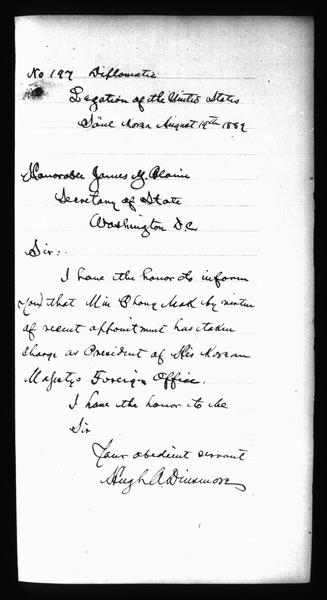 No 197 Diplomatic
Legation of the United States
Söul Korea August 19th 1889
Honorable James G. Blaine
Secretary of State
Washington D.C.
Sir:-
I have the honor to inform
you that Min Chong Mok by virtue
of recent appointment has taken
charge as President of His Korean
Majesty's Foreign Office.
I have the honor to be
Sir
Your obedient servant
Hugh A. Dinsmore